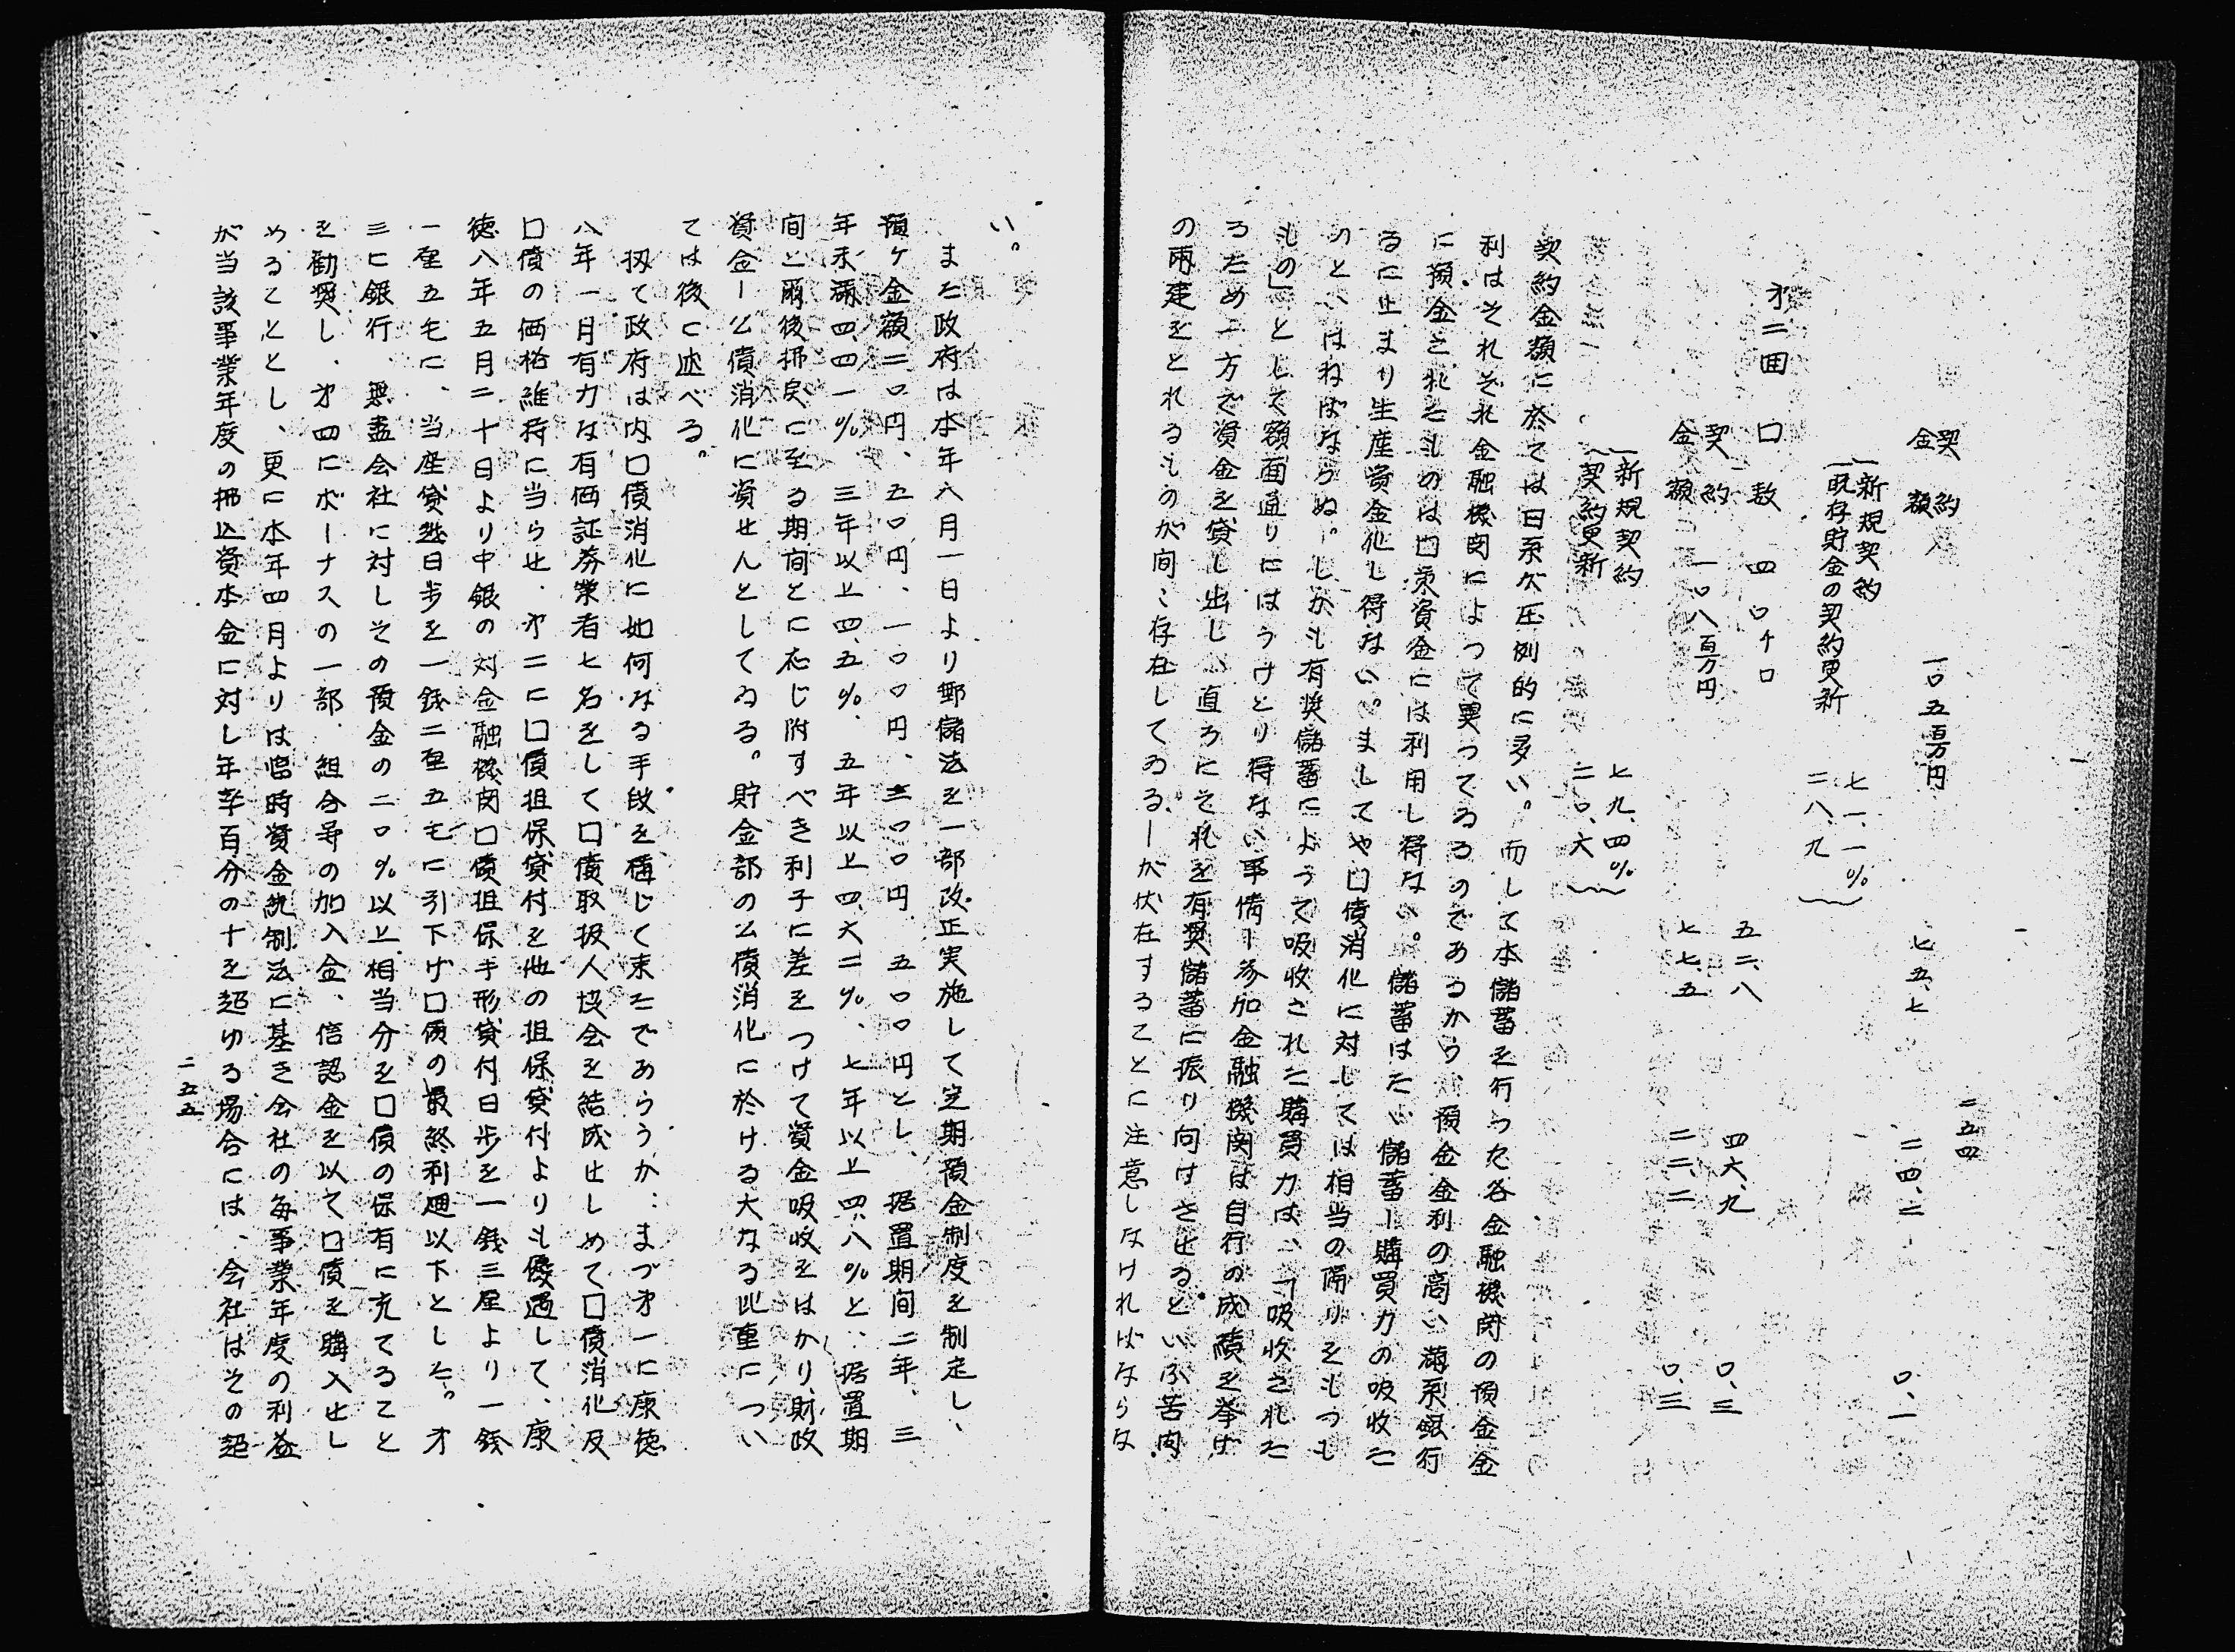 二五四
契約金額 一〇五百万円 七五、七 二四、二 〇、一
新規契約 七一、一%
既存貯金の契約更新 二八、九
才二囬 口数 四〇千口 五二、八 四六、九 〇、三
契約金額 一〇八百万円 七七、五 二二、二 〇、三
新規契約 七九、四%
契約更新 二〇、六
契約金額に於ては日系が圧倒的に多い。而して本儲蓄を行った各金融機関の預金金
利はそれぞれ金融機関によって異ってゐるのであるから、預金金利の高い満系銀行
に預金されたものは口家資金には利用し得ない。儲蓄はたゞ儲蓄ー購買力の吸收た
るに止まり生産資金化し得ない。ましてや口債消化に対しては相当の隔りをもつも
のといはねばならぬ。しかも有奬儲蓄によって吸收された購買力は、「吸收された
もの」として額面通りにはうけとり得ない事情ー参加金融機関は自行の成績を挙げ
るため一方で資金を貸し出し、直ちにそれを有奬儲蓄に振り向けさせるといふ苦肉
の両建をとれるものが間々存在してゐるーが伏在することに注意しなければならな
い。
また政府は本年六月一日より郵儲法を一部改正実施して定期預金制度を制定し、
預ケ金額二〇円、五〇円、一〇〇円、三〇〇円、五〇〇円とし、据置期間二年、三
年未満四、四一%、三年以上四、五%、五年以上四、六二%、七年以上四、八%と、据置期
间と爾後拂戻に至る期间とに応じ附すべき利子に差をつけて資金吸收をはかり、財政
資金ー公債消化に資せんとしてゐる。貯金部の公債消化に於ける大なる比重につい
ては後に述べる。
扨て政府は内口債消化に如何なる手段を講じて来たであらうか、まづ才一に康徳
八年一月有力な有価証券業者七名をして口債取扱人協会を結成せしめて口債消化及
口債の価格維持に当らせ、才二に口債担保貸付を他の担保貸付よりも優遇して、康
徳八年五月二十日より中銀の対金融機関口債担保手形貸付日歩を一銭三厘より一銭
一厘五毛に、当座貸越日歩を一銭二厘五毛に引下げ口債の最終利廻以下とした。才
三に銀行、無盡会社に対しその預金の二〇%以上相当分を口債の保有に充てること
を勧奬し、才四にボーナスの一部、組合等の加入金、信認金を以て口債を購入せし
めることとし、更に本年四月よりは臨時資金統制法に基き会社の毎事業年度の利益
が当該事業年度の拂込資本金に対し年率百分の十を超ゆる場合には、会社はその超
二五五